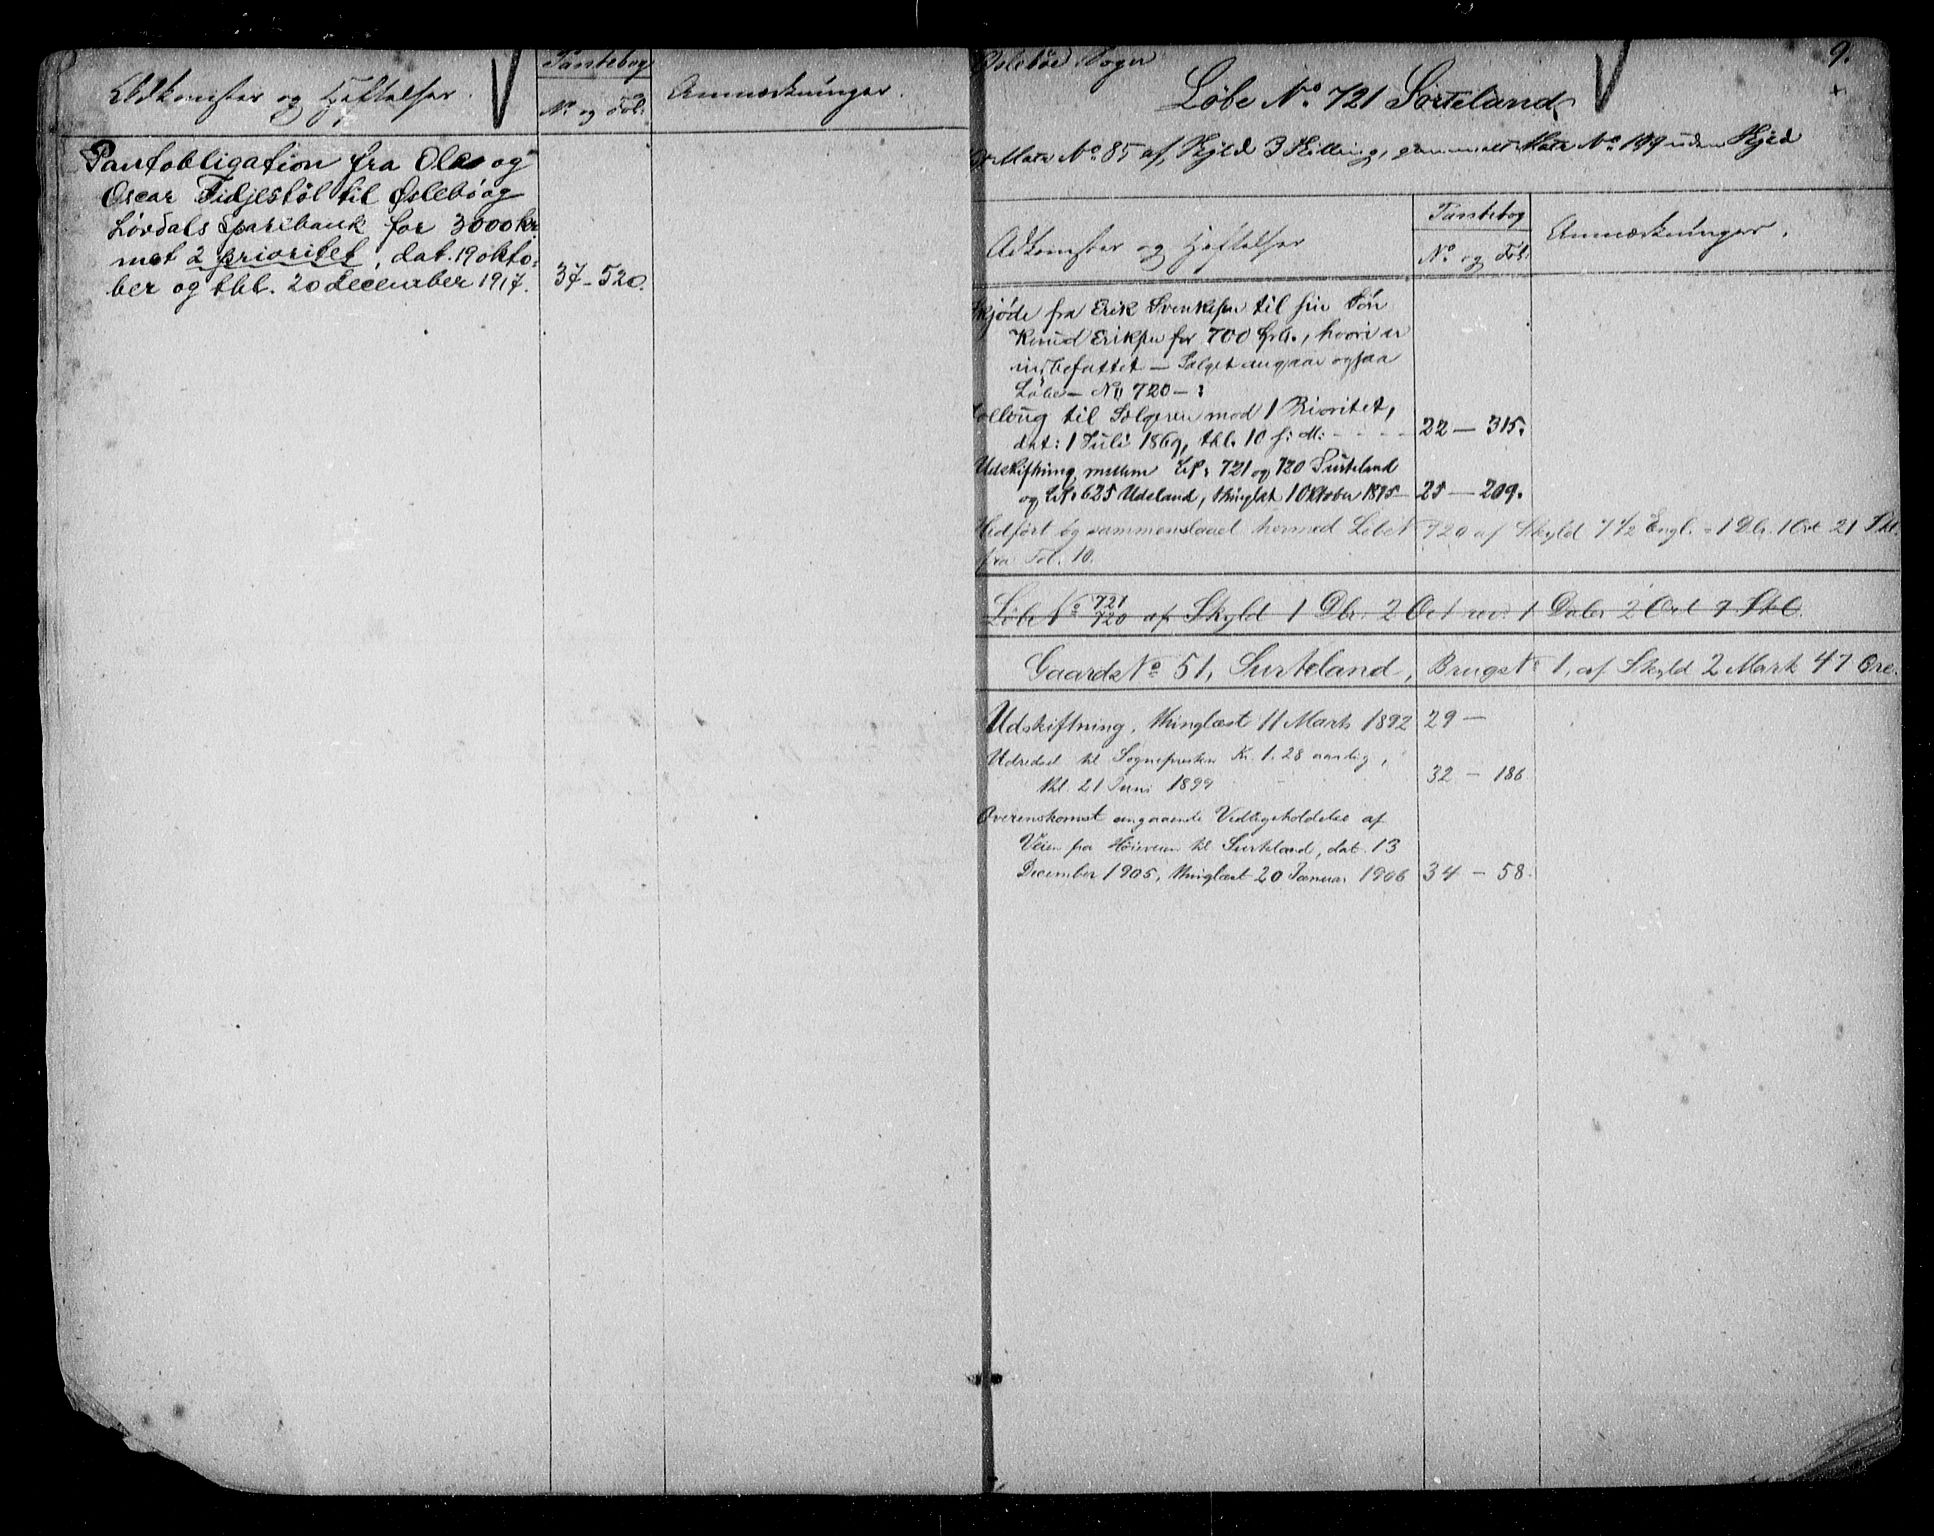 Adkomster og Heftelser.
Pantebog
No og Fol:
Anmærkninger.
Pantobligation fra Ole og
Oscar Fidjestøl til Øslebø og
Løvdals Sparebank for 3000 kr
mot 2 prioritet, dat. 19 okto-
ber og thl. 20 december 1917.
37 - 520.
Øslebøe Sogn
9.
Løbe No 721 Surteland
Matr No 85 af Skyld 3 Skilling, gammelt Matr No 199 uden Skyld
Adkomster og Heftelser
Pantebog
No og Fol:
Anmærkninger.
Skjøde fra Erik Svenksen til sin Søn
Knud Eriksen for 700 Spd., hvori er
indbefattet — Salget angaar ogsaa
Løbe - No 720 - :
Folloug til Sælgeren mod 1 Prioritet,
dat: 1 Juli 1869, thl. 10 s: M: 22 — 315.
Udskiftning mellem LN: 721 og 720 Surteland
og LN: 625 Udeland, thinglæst 1 Oktober 1875 25 — 209.
Hidført og sammenslaaet hermed Løbe N 720 af Skyld 7 1/2 Engl. = 1 Dlr. 1 Ort 21 Skl.
fra Fol. 10.
Løbe No 721/720 af Skyld 1 Dlr. 2 Ort rev: 1 Daler 2 Ort 7 Skl.
Gaards No 51, Surteland, Brugs N 1, af Skyld 2 Mark 47 Øre.
Udskiftning, thinglæst 11 Marts 1892 29 —
Udredsel til Sognepresten Kr. 1.28 aarlig,
thl. 21 Juni 1899 32 — 186
Overenskomst angaaende Vedligeholdelse af
Veien fra Høieveien til Surteland, dat. 13
December 1905, thinglæst 20 Januar 1906 34 — 58.